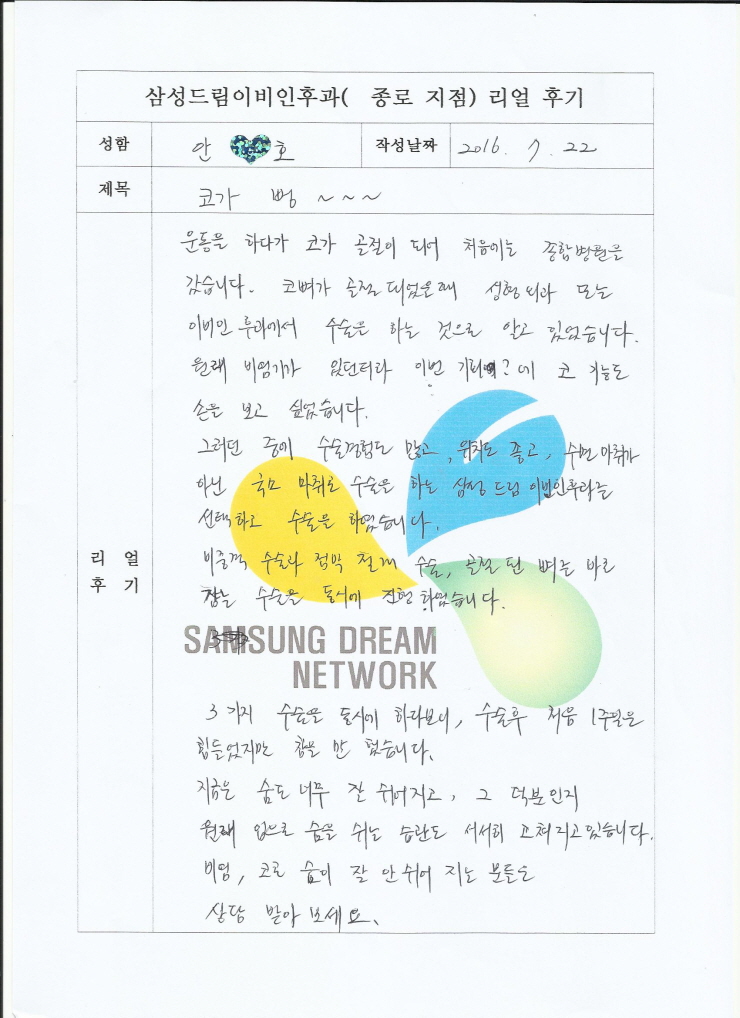 삼성드림이비인후과( 종로 지점) 리얼 후기
성함 안 호 작성날짜 2016. 7. 22
제목 코가 뻥 ~ ~ ~
운동을 하다가 코가 골절이 되어 처음에는 종합병원을
갔습니다. 코뼈가 골절되었을때 성형외과 또는
이비인후과에서 수술을 하는 것으로 알고 있었습니다.
원래 비염기가 있던터라 이번 기회에? 코 기능도
손을 보고 싶었습니다.
그러던 중에 수술경험도 많고, 위치도 좋고, 수면마취가
아닌 국소 마취로 수술을 하는 삼성드림이비인후과를
선택하고 수술을 하였습니다.
비중격 수술과 점막 절제 수술, 골절 된 뼈를 바로
잡는 수술을 동시에 진행하였습니다.
SAMSUNG DREAM
NETWORK
3가지 수술을 동시에 하다보니, 수술후 처음 1주일은
힘들었지만 참을 만 했습니다.
지금은 숨도 너무 잘 쉬어지고, 그 덕분인지
원래 입으로 숨을 쉬는 습관도 서서히 고쳐지고있습니다.
비염, 코로 숨이 잘 안쉬어 지는 분들도
상담 받아 보세요.
리 얼
후 기